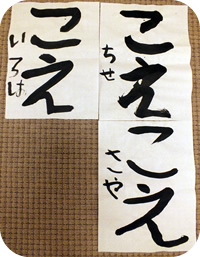 こえ
いろは
こえ
ちせ
こえ
さや